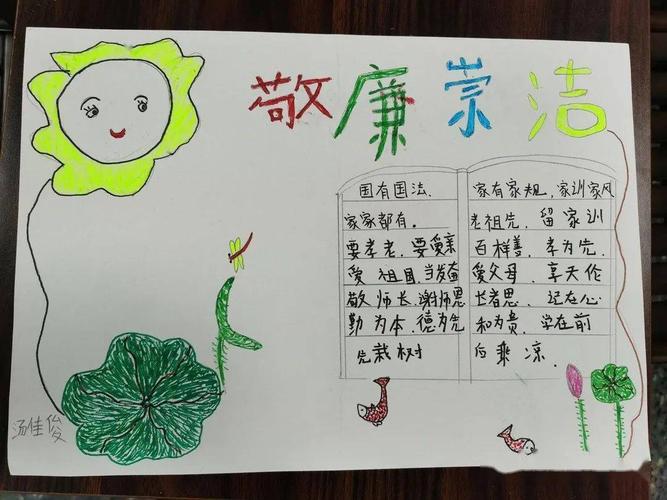 敬廉崇洁
国有国法.
家家都有。
要孝老,要爱亲
爱祖国,当发奋
敬师长,谢师恩
勤为本,德为先
先栽树
家有家规,家训家风
老祖先,留家训
百样善,孝为先.
爱父母,享天伦
长者恩,记在心
和为贵,学在前
后乘凉.
汤佳俊